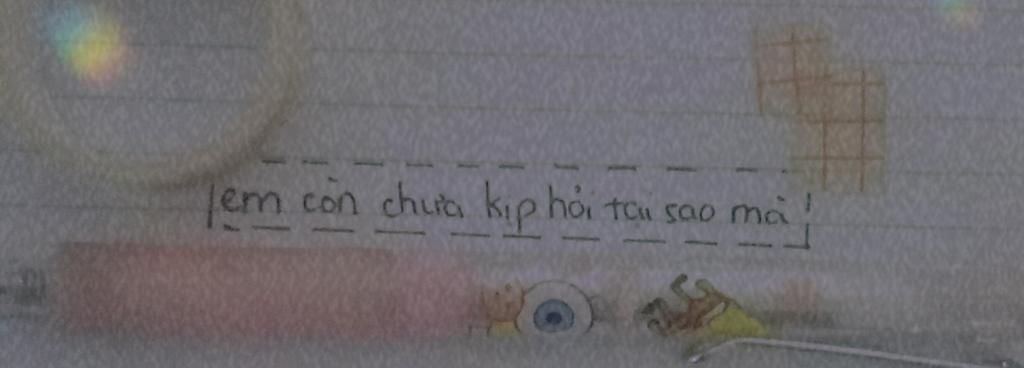 em còn chưa kịp hỏi tại sao mà